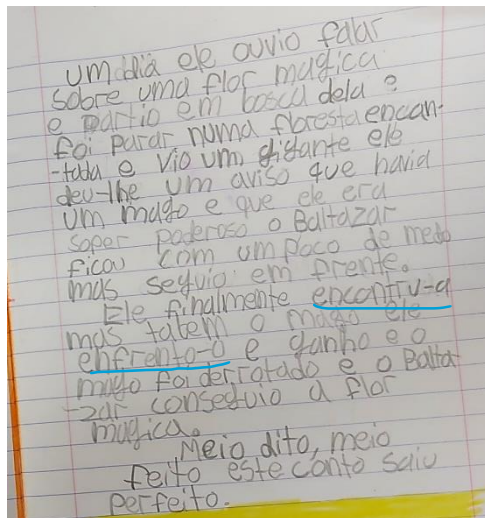 um dia ele ouvio falar
sobre uma flor magica
e partio em bosca dela e
foi parar numa floresta encan-
-tada e vio um gigante ele
deu-lhe um aviso que havia
um mago e que ele era
soper poderoso o Baltazar
ficou com um poco de medo
mas seguio em frente.
Ele finalmente encontru-a
mas tatem o mago ele
enfrento-o e ganho e o
mago foi derrotado e o Balta
-zar conseguio a flor
magica.
Meio dito, meio
feito este conto saiu
perfeito.